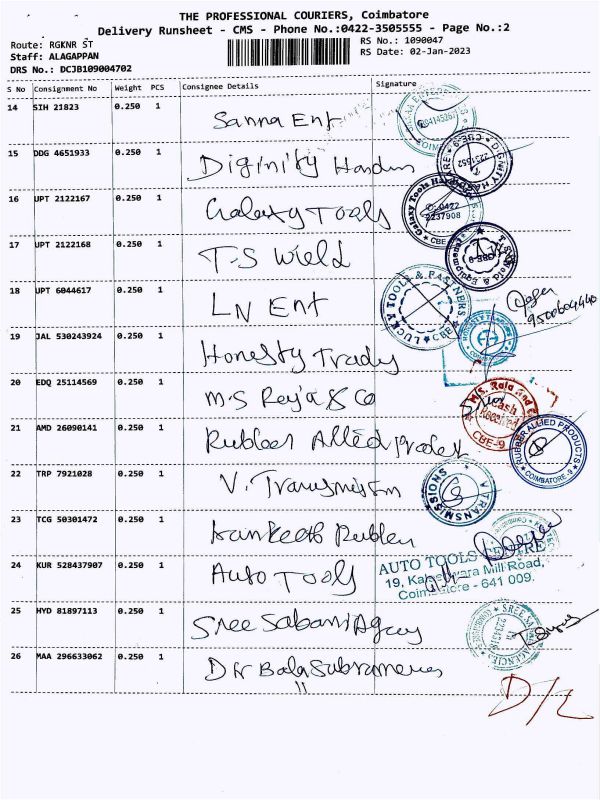 THE PROFESSIONAL COURIERS, Coimbatore
Delivery Runsheet - CMS - Phone No.:0422-3505555 - Page No.:2
Route: RGKNR ST
RS No.: 1090047
Staff: ALAGAPPAN
RS Date: 02-Jan-2023
DRS No.: DCJB109004702
S No Consignment No Weight PCS Consignee Details Signature
14 SIH 21823 0.250 1 Sanna Ent
15 DDG 4651933 0.250 1 Diginity
DIGNITY
2231552
16 UPT 2122167 0.250 1 Galaxy Tools
Galaxy Tools
0422
2237908
CBE
17 UPT 2122168 0.250 1 T-S Wield
18 UPT 6044617 0.250 1 LN Ent
LUCKY TOOLS & PARTNERS
CBE
19 JAL 530243924 0.250 1 Honesty Trady
20 EDQ 25114569 0.250 1 M.S Reja & Co
M.S. Raja and
Cash
Received
CBE-9
21 AMD 26090141 0.250 1 Rubber Allied
RUBBER ALLIED PRODUCTS
COIMBATORE-9
22 TRP 7921028 0.250 1 V. Transmission
V TRANSMISSIONS
23 TCG 50301472 0.250 1
24 KUR 528437907 0.250 1 Auto Tools
AUTO TOOLS CENTRE
19, Mill Road,
Coimbatore - 641 009.
25 HYD 81897113 0.250 1 Sree Sabari Agcy
SREE
26 MAA 296633062 0.250 1 Dr Bala
D/L